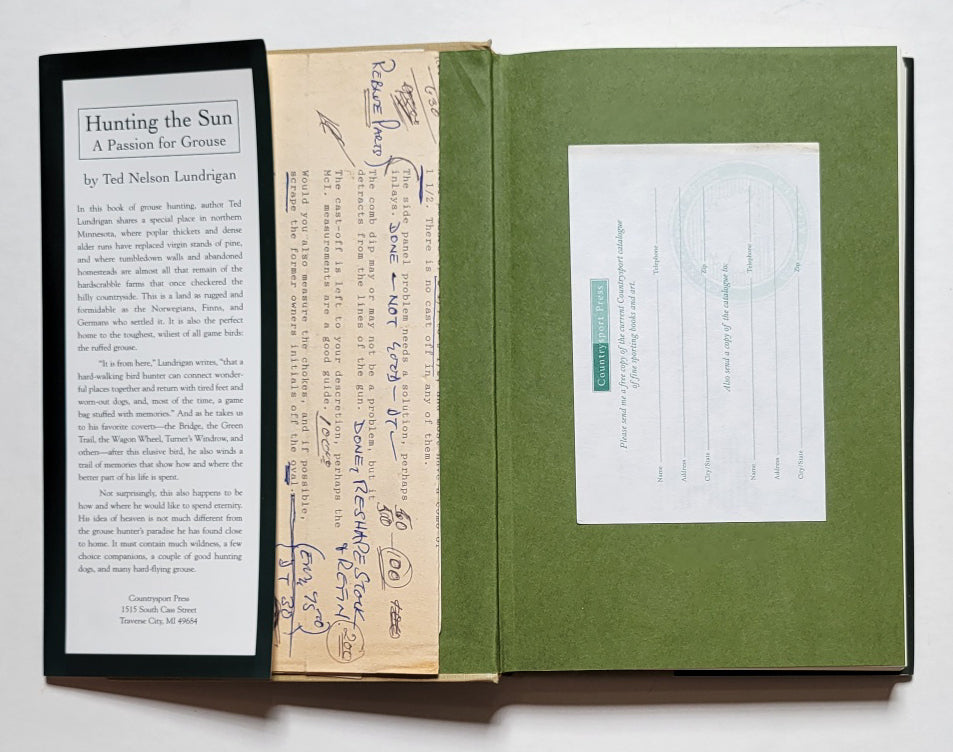 Hunting the Sun
A Passion for Grouse
by Ted Nelson Lundrigan
In this book of grouse hunting, author Ted
Lundrigan shares a special place in northern
Minnesota, where poplar thickets and dense
alder runs have replaced virgin stands of pine,
and where tumbledown walls and abandoned
homesteads are almost all that remain of the
hardscrabble farms that once checkered the
hilly countryside. This is a land as rugged and
formidable as the Norwegians, Finns, and
Germans who settled it. It is also the perfect
home to the toughest, wiliest of all game birds:
the ruffed grouse.
"It is from here," Lundrigan writes, "that a
hard-walking bird hunter can connect wonder-
ful places together and return with tired feet and
worn-out dogs, and, most of the time, a game
bag stuffed with memories." And as he takes us
to his favorite coverts—the Bridge, the Green
Trail, the Wagon Wheel, Turner's Windrow, and
others—after this elusive bird, he also winds a
trail of memories that show how and where the
better part of his life is spent.
Not surprisingly, this also happens to be
how and where he would like to spend eternity.
His idea of heaven is not much different from
the grouse hunter's paradise he has found close
to home. It must contain much wildness, a few
choice companions, a couple of good hunting
dogs, and many hard-flying grouse.
Countrysport Press
1515 South Cass Street
Traverse City, MI 49684
630
REBLUE PARTS
1 1/2. There is no cast off in any of them.
The side panel problem needs a solution, perhaps
inlays. DONE - NOT GOOD -
100
The comb dip may or may not be a problem, but it
detracts from the lines of the gun. DONE? RESHAPE STOCK
& REFIN 200
The cast-off is left to your descretion, perhaps the
McL. measurements are a good guide. 100
Would you also measure the chokes, and if possible,
scrape the former owners initials off the oval.
Countrysport Press
Please send me a free copy of the current Countrysport catalogue
of fine sporting books and art.
Name Telephone
Address
City/State Zip
Also send a copy of the catalogue to:
Name Telephone
Address
City/State Zip